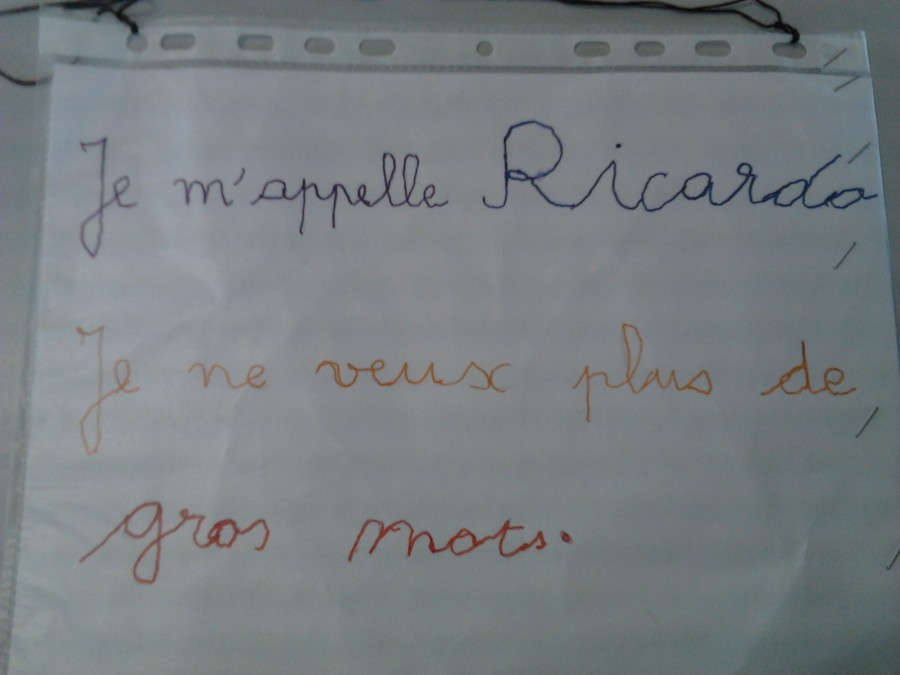 Je m'appelle Ricardó
Je ne veux plus de
gros mots.